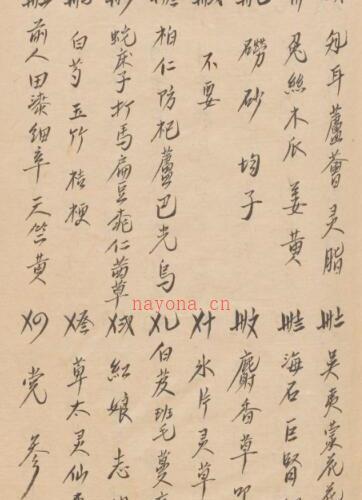 耳蘆薈灵脂
兔絲木瓜姜黃
砂均子
不要
柏仁防杞蘆巴光烏
蛇床子打馬扁豆桃仁茜草
白芍五竹桔梗
前人田漆細辛天竺黃
吳萸蒙花
海石巨腎
麝香草叩
冰片灵草
白芨班毛蔓
紅娘志
草太灵仙
党參
nayona.cn